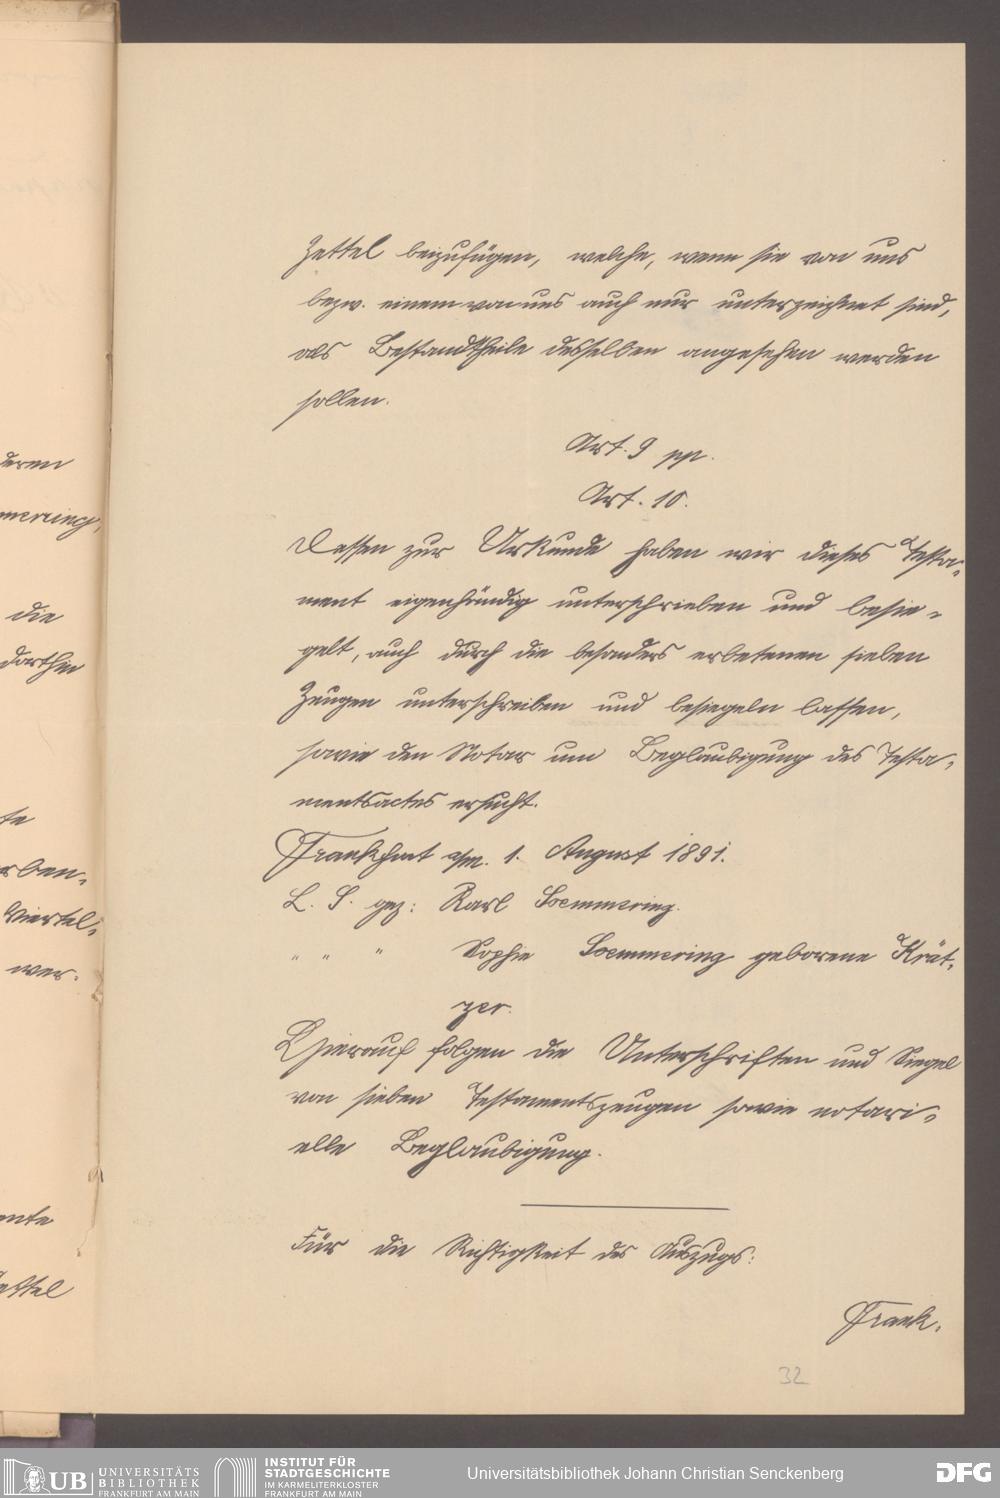 deren
mering,
die
dorthin
te
rben-
Viertel-
wer.
ente
ettel
Zettel beizufügen, welche, wenn sie von uns
bezw. einem von uns auch nur unterzeichnet sind,
als Bestandtheile desselben angesehen werden
sollen.
Art. 9 pp.
Art. 10.
Dessen zur Urkunde haben wir dieses Testa-
ment eigenhändig unterschrieben und besie-
gelt, auch durch die besonders erbetenen sieben
Zeugen unterschreiben und besiegeln lassen,
sowie den Notar um Beglaubigung des Testa-
mentsactes ersucht.
Frankfurt a/m. 1. August 1891.
L. S. gez: Karl Soemmering.
" " " Sophie Soemmering geborene Krät-
zer.
Hierauf folgen die Unterschriften und Siegel
von sieben Testamentszeugen sowie notari-
elle Beglaubigung.
Für die Richtigkeit des Auszugs:
Frank-
32
UB UNIVERSITÄTS
BIBLIOTHEK
FRANKFURT AM MAIN
INSTITUT FÜR
STADTGESCHICHTE
IM KARMELITERKLOSTER
FRANKFURT AM MAIN
Universitätsbibliothek Johann Christian Senckenberg
DFG